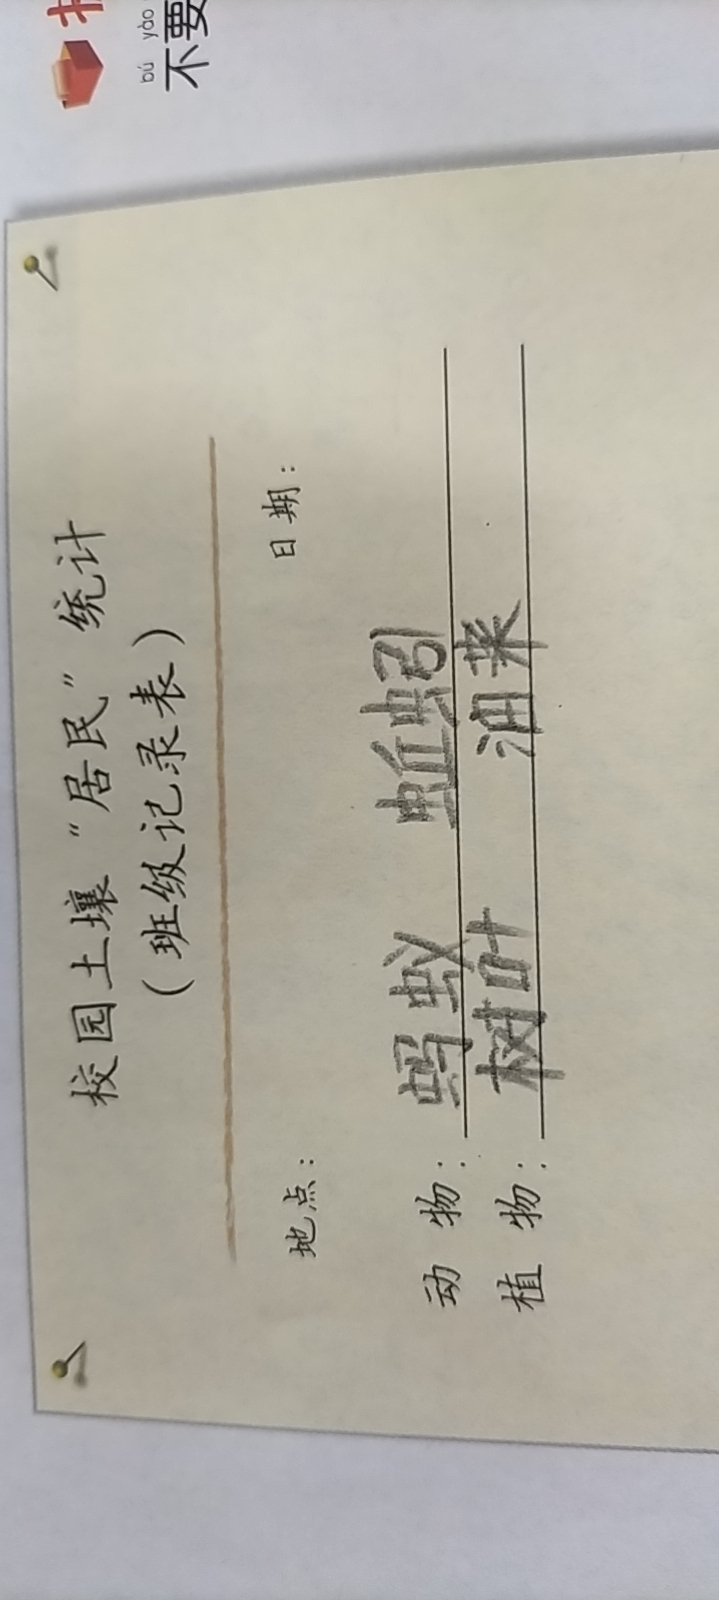 bú yào
不要
校园土壤“居民”统计
（班级记录表）
地点： 日期：
动 物： 蚂蚁 蚯蚓
植 物： 树叶 油菜